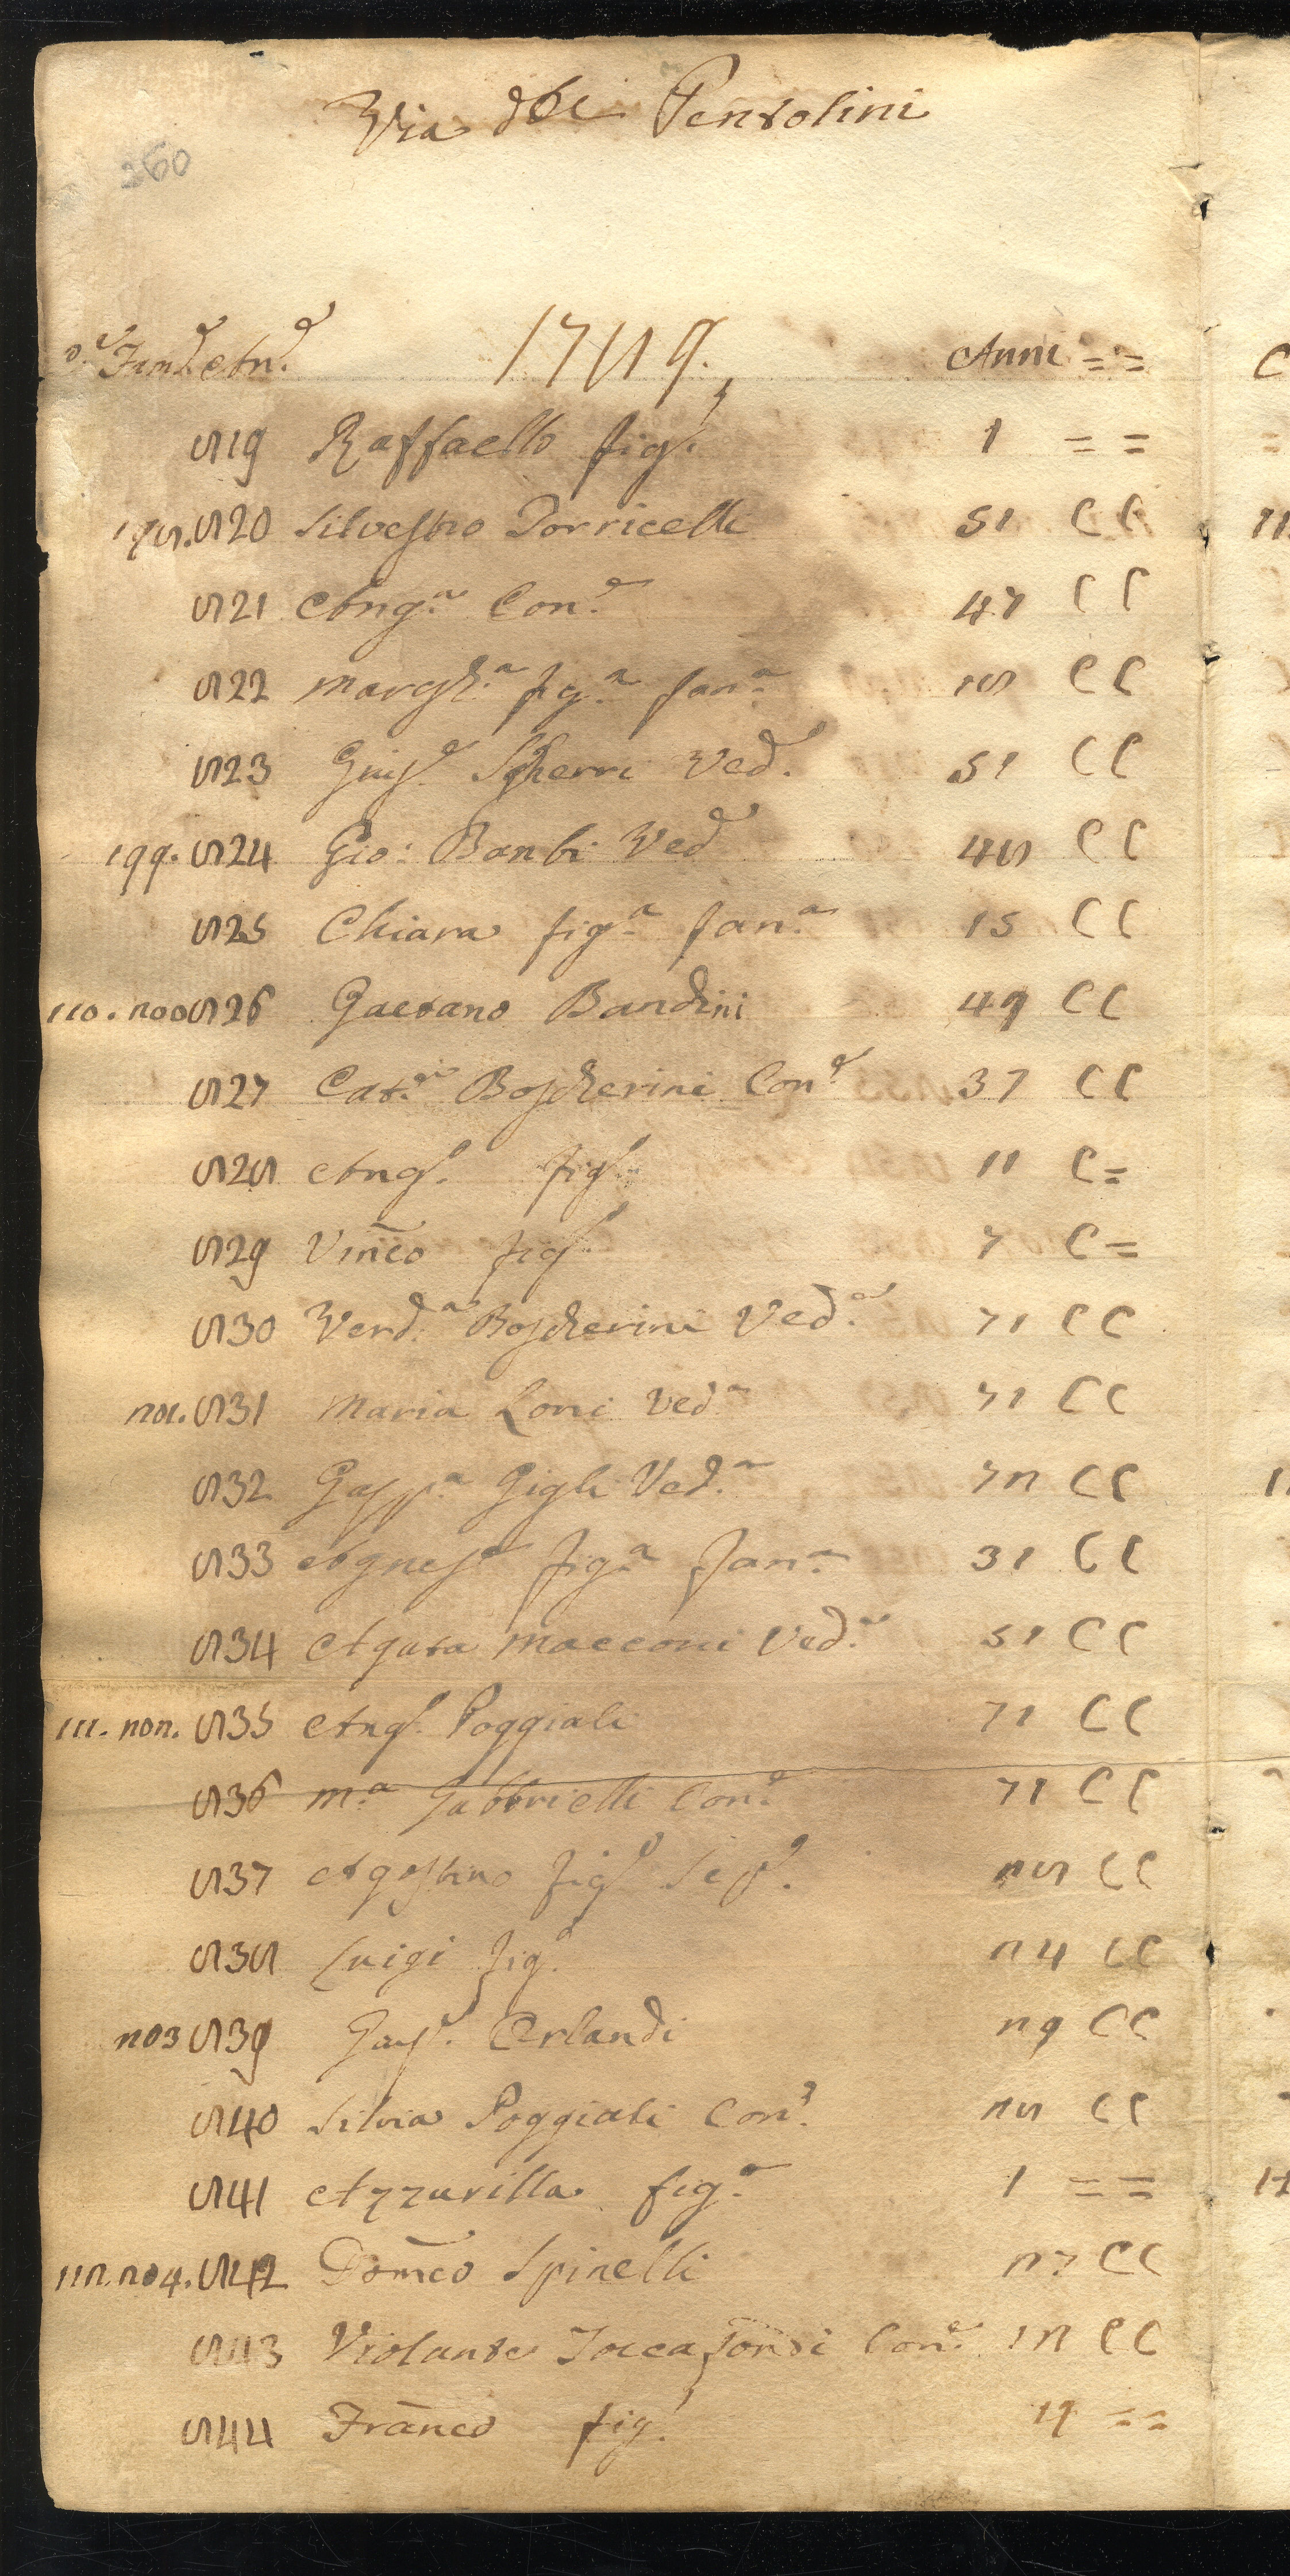 Via dei Pentolini
260
Fam.e An.e 1789. Anni = =
819 Raffaello fig.o 1 = =
198. 820 Silvestro Torricelli 51 C C
821 Ang.a Con.e 47 C C
822 Margh.a fig.a fan.a 18 C C
823 Gius.e Sgherri Ved.o 51 C C
199. 824 Gio: Banbi Ved.o 48 C C
825 Chiara fig.a fan.a 15 C C
110. 200 826 Gaetano Bandini 49 C C
827 Cat.a Boscherini Con.e 37 C C
828 Ang.o fig.o 11 C =
829 Vinco fig.o 7 C =
830 Verd.a Boscherini Ved.a 71 C C
201. 831 Maria Loni Ved.a 71 C C
832 Gasp.a Gigli Ved.a 72 C C
833 Agnesa fig.a fan.a 31 C C
834 Agata Macconi Ved.a 51 C C
111. 202. 835 Ang.o Poggiali 71 C C
836 M.a Gabbrielli Con.e 71 C C
837 Agostino fig.o 28 C C
838 Luigi fig.o 24 C C
203 839 Gasp.e Orlandi 29 C C
840 Silvia Poggiali Con.e 28 C C
841 Azzurilla fig.a 1 = =
112. 204. 842 Domco Spinelli 27 C C
843 Violante Toccafondi Con.e C C
844 Franco fig.o = =